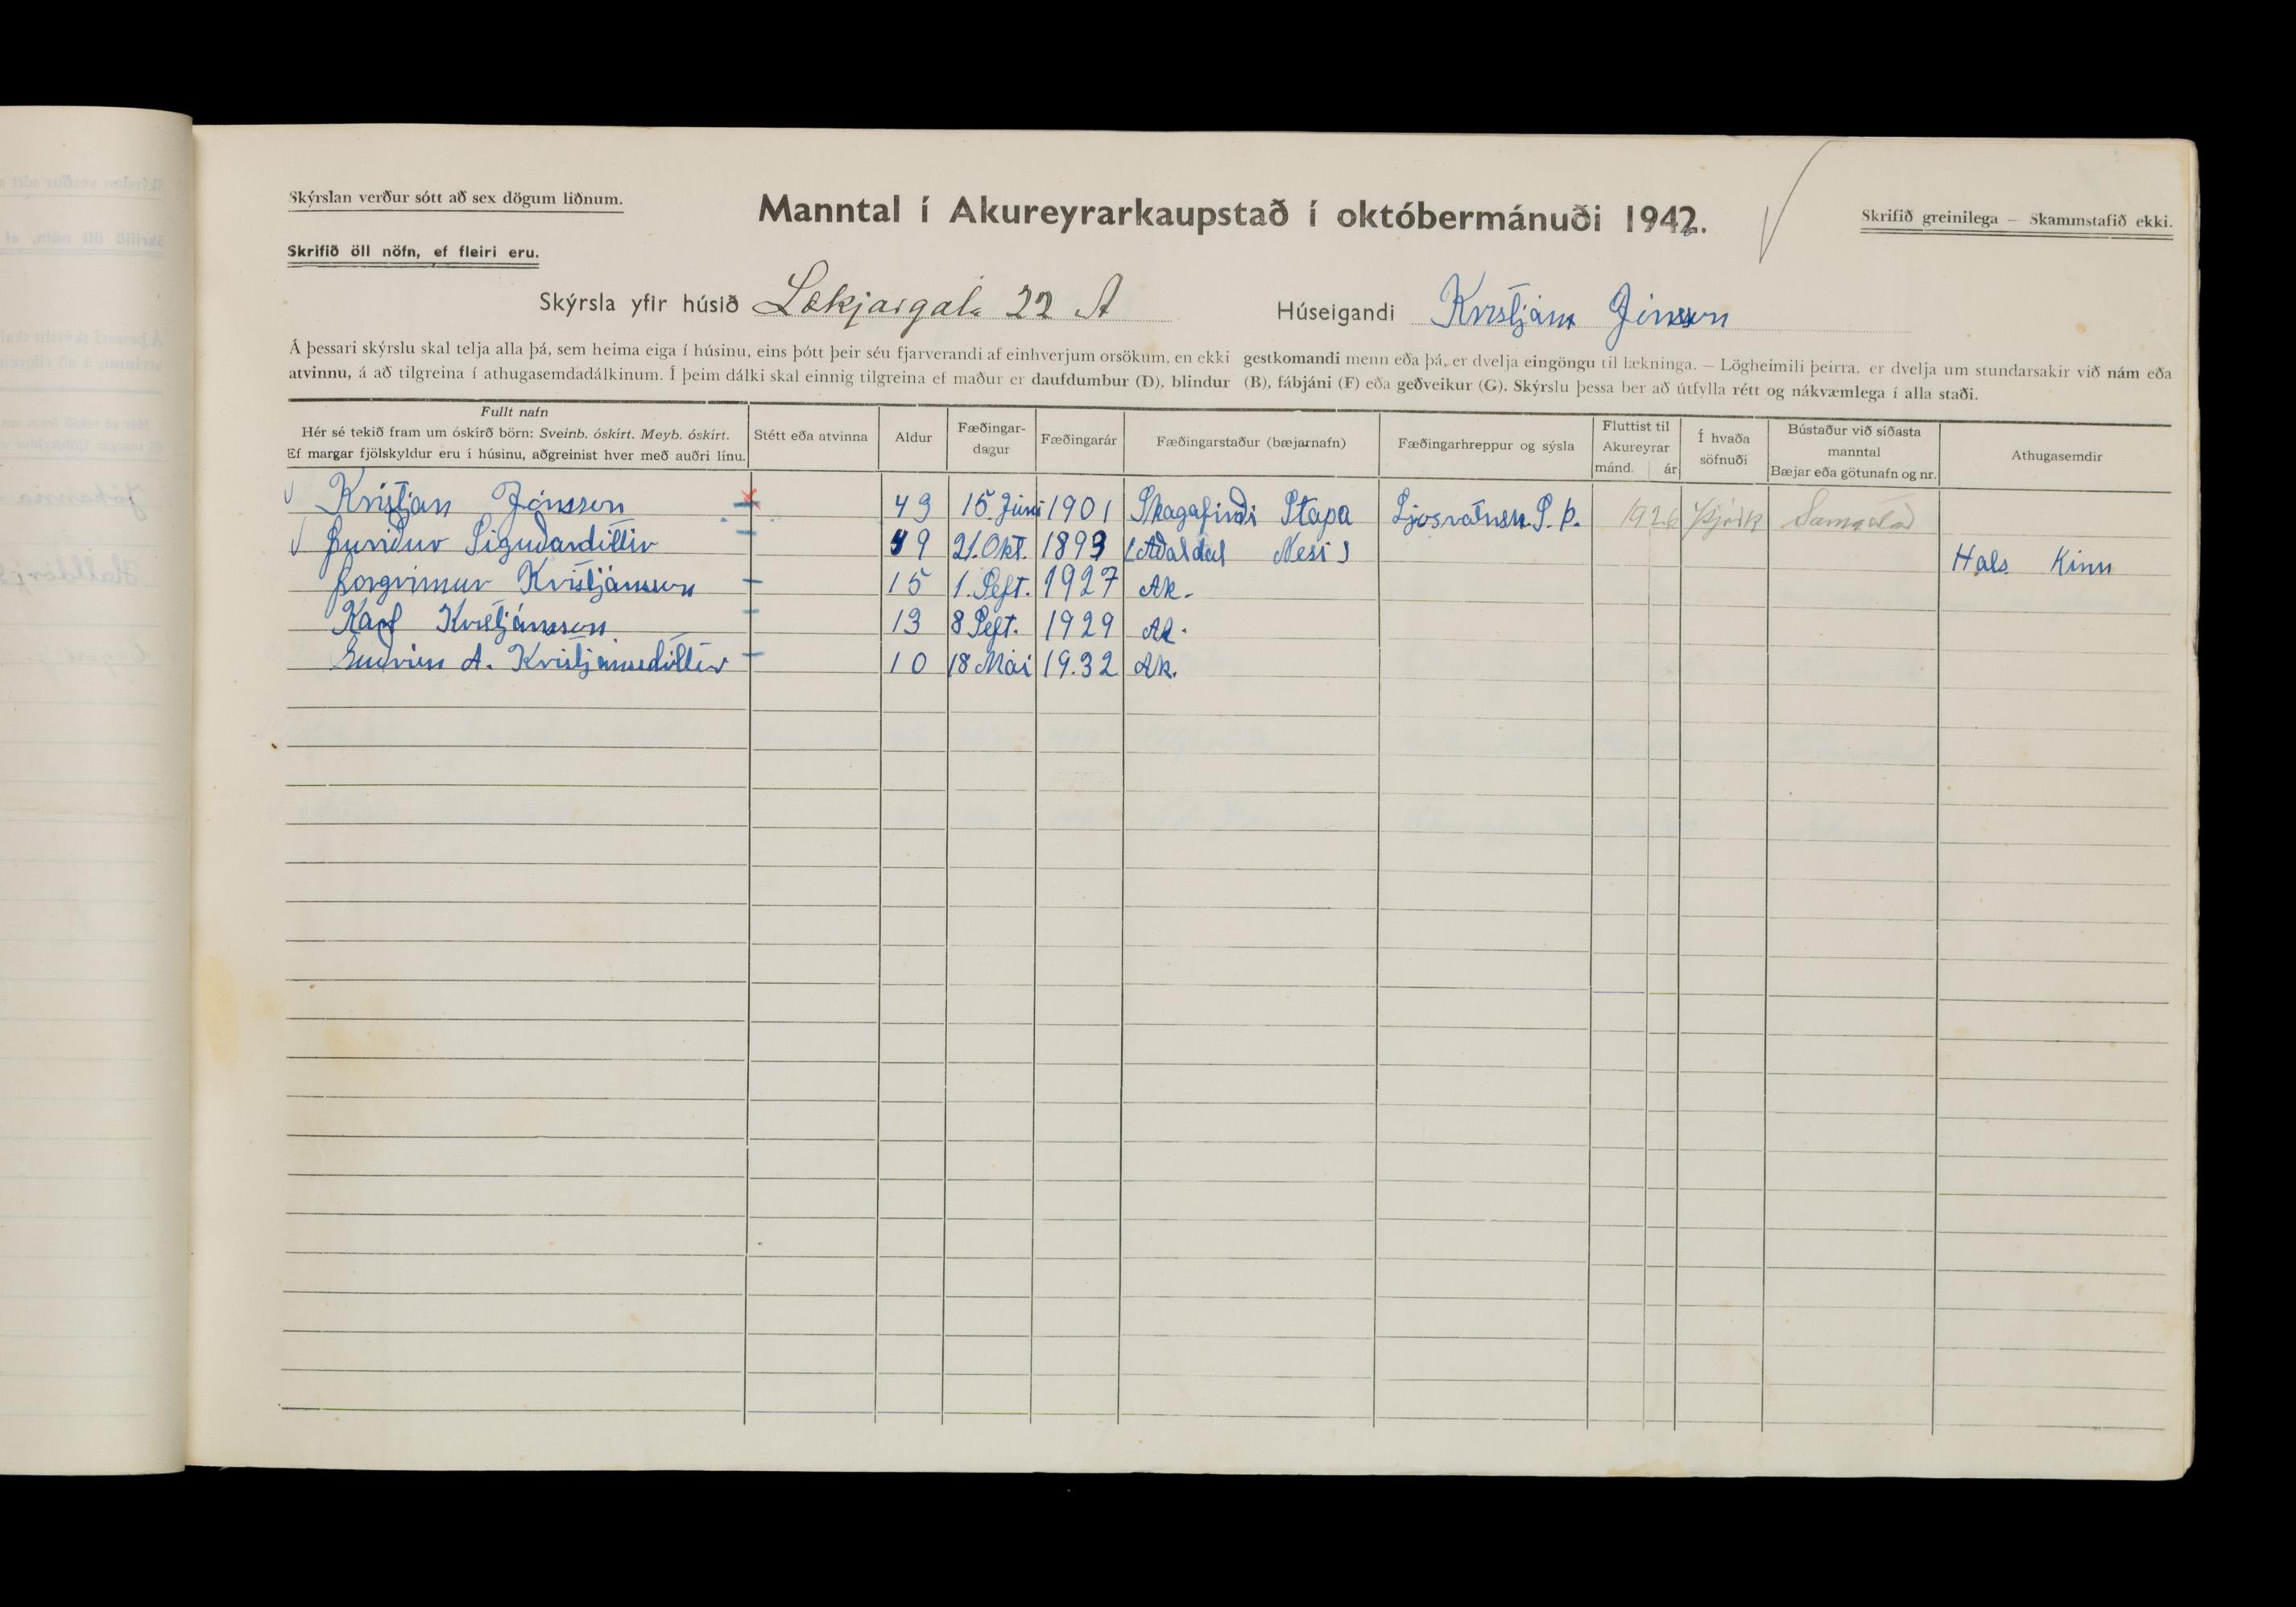 Skýrslan verður sótt að sex dögum liðnum.
Manntal í Akureyrarkaupstað í októbermánuði 1942.
Skrifið greinilega — Skammstafið ekki.
Skrifið öll nöfn, ef fleiri eru.
Skýrsla yfir húsið Lækjargata 22 A Húseigandi Kristján Jónsson
Á þessari skýrslu skal telja alla þá, sem heima eiga í húsinu, eins þótt þeir séu fjarverandi af einhverjum orsökum, en ekki gestkomandi menn eða þá, er dvelja eingöngu til lækninga. — Lögheimili þeirra, er dvelja um stundarsakir við nám eða
atvinnu, á að tilgreina í athugasemdadálkinum. Í þeim dálki skal einnig tilgreina ef maður er daufdumbur (D), blindur (B), fábjáni (F) eða geðveikur (G). Skýrslu þessa ber að útfylla rétt og nákvæmlega í alla staði.
Fullt nafn
Hér sé tekið fram um óskírð börn: Sveinb. óskírt. Meyb. óskírt.
Ef margar fjölskyldur eru í húsinu, aðgreinist hver með auðri línu.
Stétt eða atvinna
Aldur
Fæðingar-
dagur
Fæðingarár
Fæðingarstaður (bæjarnafn)
Fæðingarhreppur og sýsla
Fluttist til
Akureyrar
mánd. ár
Í hvaða
söfnuði
Bústaður við síðasta
manntal
Bæjar eða götunafn og nr.
Athugasemdir
Kristján Jónsson 43 15. Júní 1901 Skagafirði Stapa Ljosvatnsh. S. Þ. 1926 Þjóðk Samastað
Þuriður Sigurðardóttir 49 21. Okt. 1893 (Aðaldal Nesi) Hals Kinn
Þorgrímur Kristjánsson 15 1. Sept. 1927 Ak.
Karl Kristjánsson 13 8 Sept. 1929 Ak.
Guðrún A. Kristjánsdóttir 10 18 Mai 19.32 Ak.